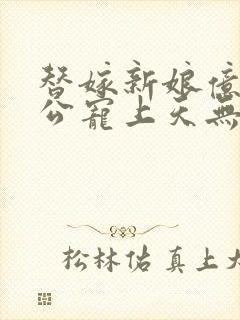 替嫁新娘億
公寵上天無
松林佑真上大